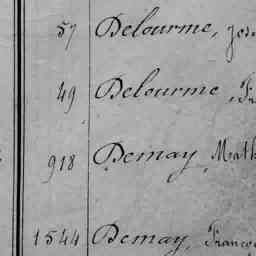 57 Delourme, José
49 Delourme, Fra
918 Demay, Math
1544 Demay, Franço